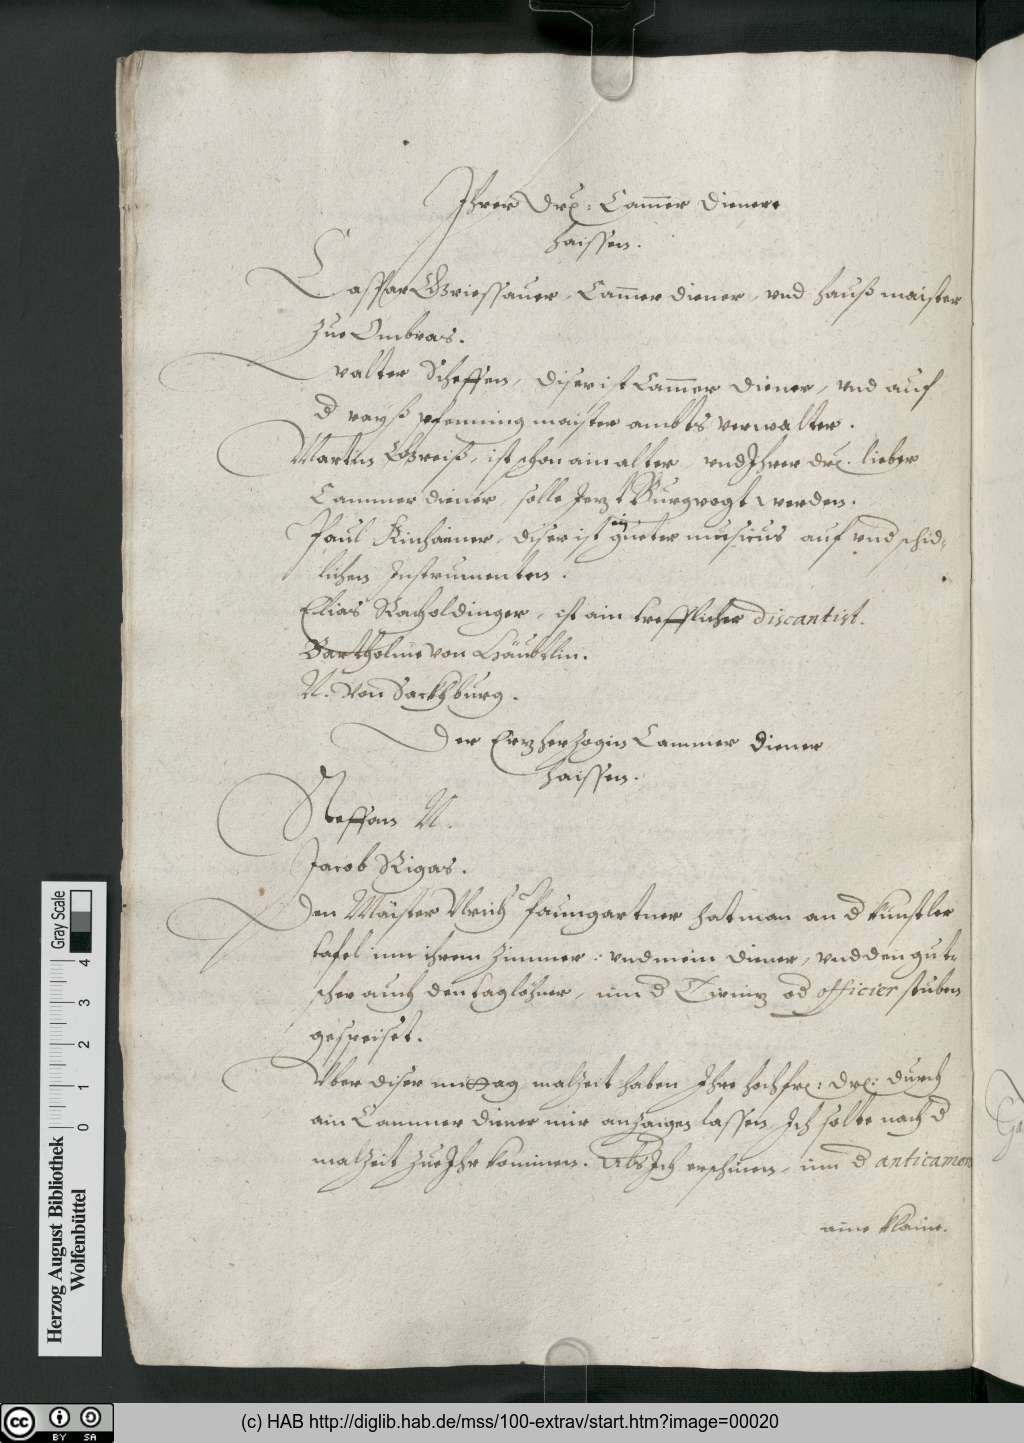 Ihrer Drl: Cammer Dienere
haissen.
Caspar Griessauer, Cammer diener, vnd haußmaister
zue Ombras.
Walter Scheffen, diser ist Cammer Diener, vnd auf
d rayß pfenningmaister ambts verwalter.
Martin Greiß, ist schon ain alter, vnd Ihrer drl. lieber
Cammer diener, solle Jezt Burgvogt werden.
Paul diser ist ein gueter musicus auf vnd schid-
lichen Instrumenten.
Elias Racholdinger, ist ain trefflicher discantist.
Bartholme von
N. von Sackhburg.
Der Erzherzogin Cammer Diener
haissen.
Steffan N.
Jacob Rigas.
Den Maister Vlrich Paumgartner hat man an d künstler
tafel inn ihrem zimmer: vnd mein diener, vnd den gut-
scher auch den taglöhner, inn d Tirniz od officier stuben
gespeiset.
Vber diser mittag malzeit haben Ihre hochfrl: drl: durch
ain Cammer diener mir anzaigen lassen, Ich solte nach d
malzeit zue Ihr kommen. Als Ich erschinen, inn d anticamera
aine klaine.
Herzog August Bibliothek
Wolfenbüttel
Gray Scale
0 1 2 3 4
cc BY SA
(c) HAB http://diglib.hab.de/mss/100-extrav/start.htm?image=00020